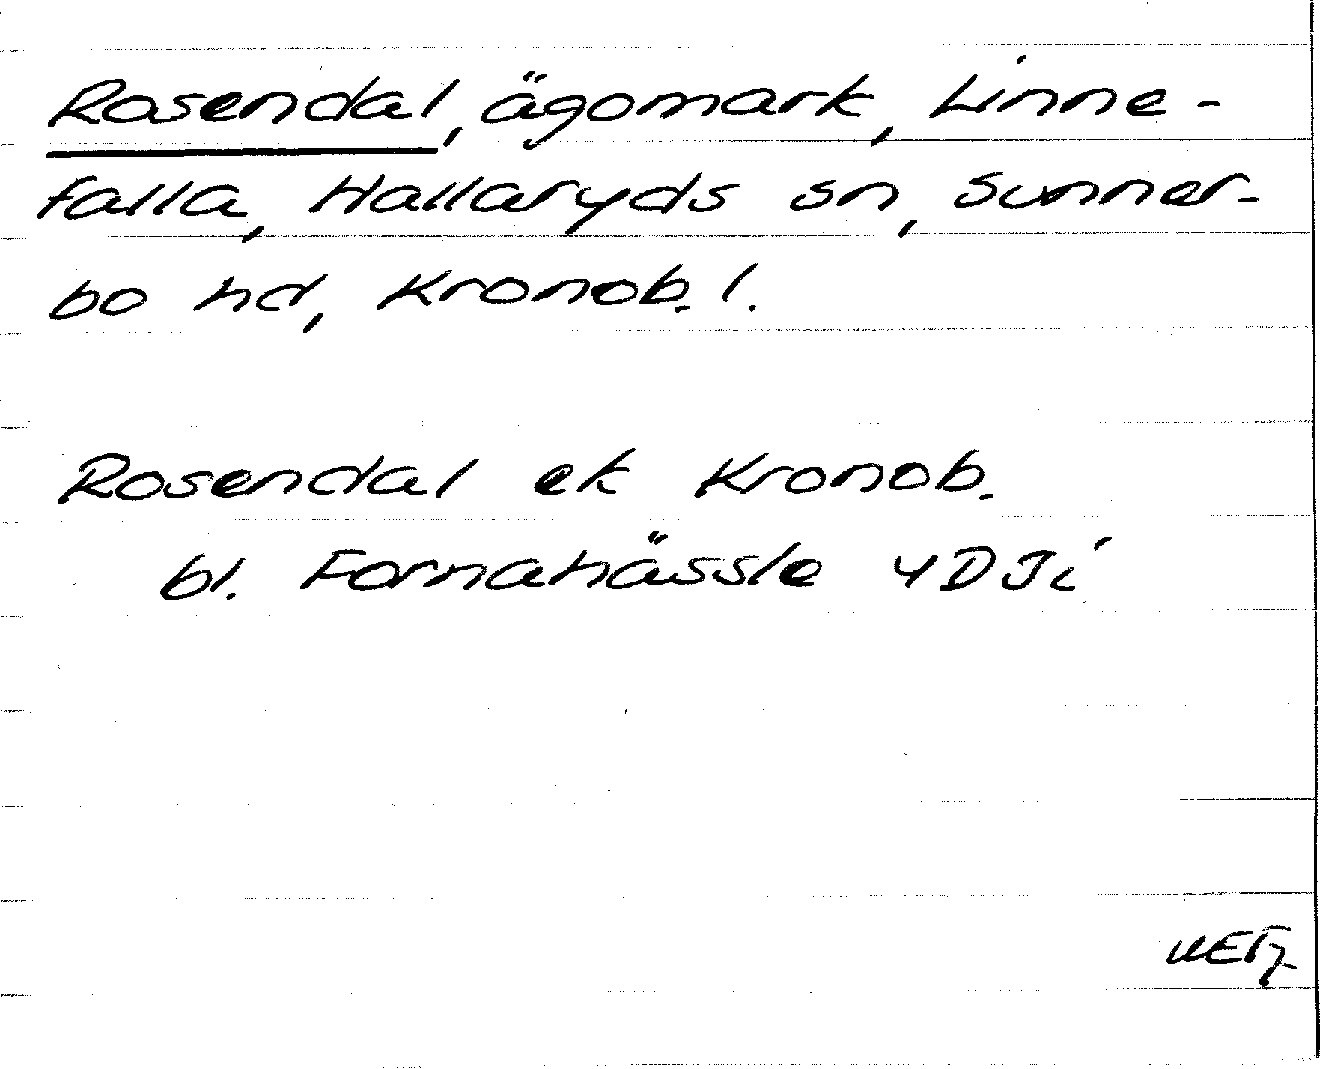 Rosendal, ägomark, Linne-
falla, Hallaryds sn, Sunner-
bo hd, Kronob. l.
Rosendal ek Kronob.
bl. Fornahässle 4D3i